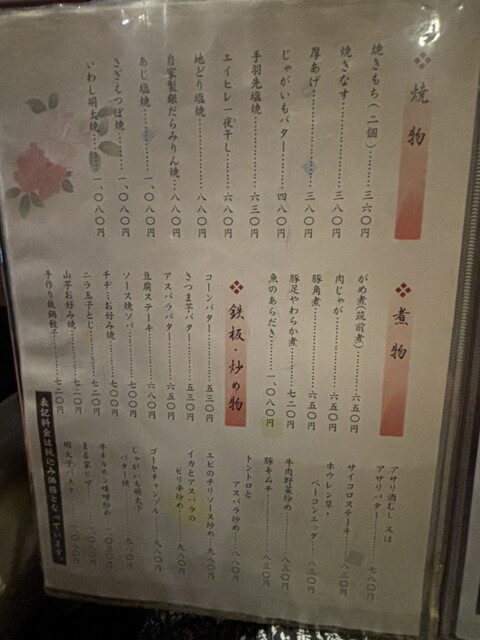 焼物
焼きもち(二個)………三六〇円
焼きなす………三八〇円
厚あげ………三八〇円
じゃがいもバター………四八〇円
手羽先塩焼………六三〇円
エイヒレ一夜干し………六八〇円
地どり塩焼………八八〇円
自家製銀だらみりん焼…八八〇円
あじ塩焼………一、〇八〇円
さざえつぼ焼………一、〇八〇円
いわし明太焼………一、〇八〇円
煮物
がめ煮(筑前煮)………六五〇円
肉じゃが………六五〇円
豚角煮………六五〇円
豚足やわらか煮………七二〇円
魚のあらだき………一、〇八〇円
鉄板・炒め物
コーンバター………五三〇円
さつま芋バター………五三〇円
アスパラバター………六五〇円
豆腐ステーキ………六八〇円
ソース焼ソバ………七〇〇円
チヂミお好み焼………七〇〇円
ニラ玉子とじ………七二〇円
山芋お好み焼………七二〇円
手作り鉄鍋餃子………七二〇円
アサリ酒むし 又は
アサリバター………七八〇円
サイコロステーキ………八三〇円
ホウレン草・
ベーコンエッグ………八三〇円
牛肉野菜炒め………八三〇円
豚キムチ………八三〇円
トントロと
アスパラ炒め………八八〇円
エビのチリソース炒め…九八〇円
イカとアスパラの
ピリ辛炒め………九八〇円
ゴーヤチャンプル………九八〇円
じゃがいも明太子
バター焼………九八〇円
牛ホルモン味噌炒め
まる家ピザ
明太子パスタ
表記料金は税込み価格となっています。